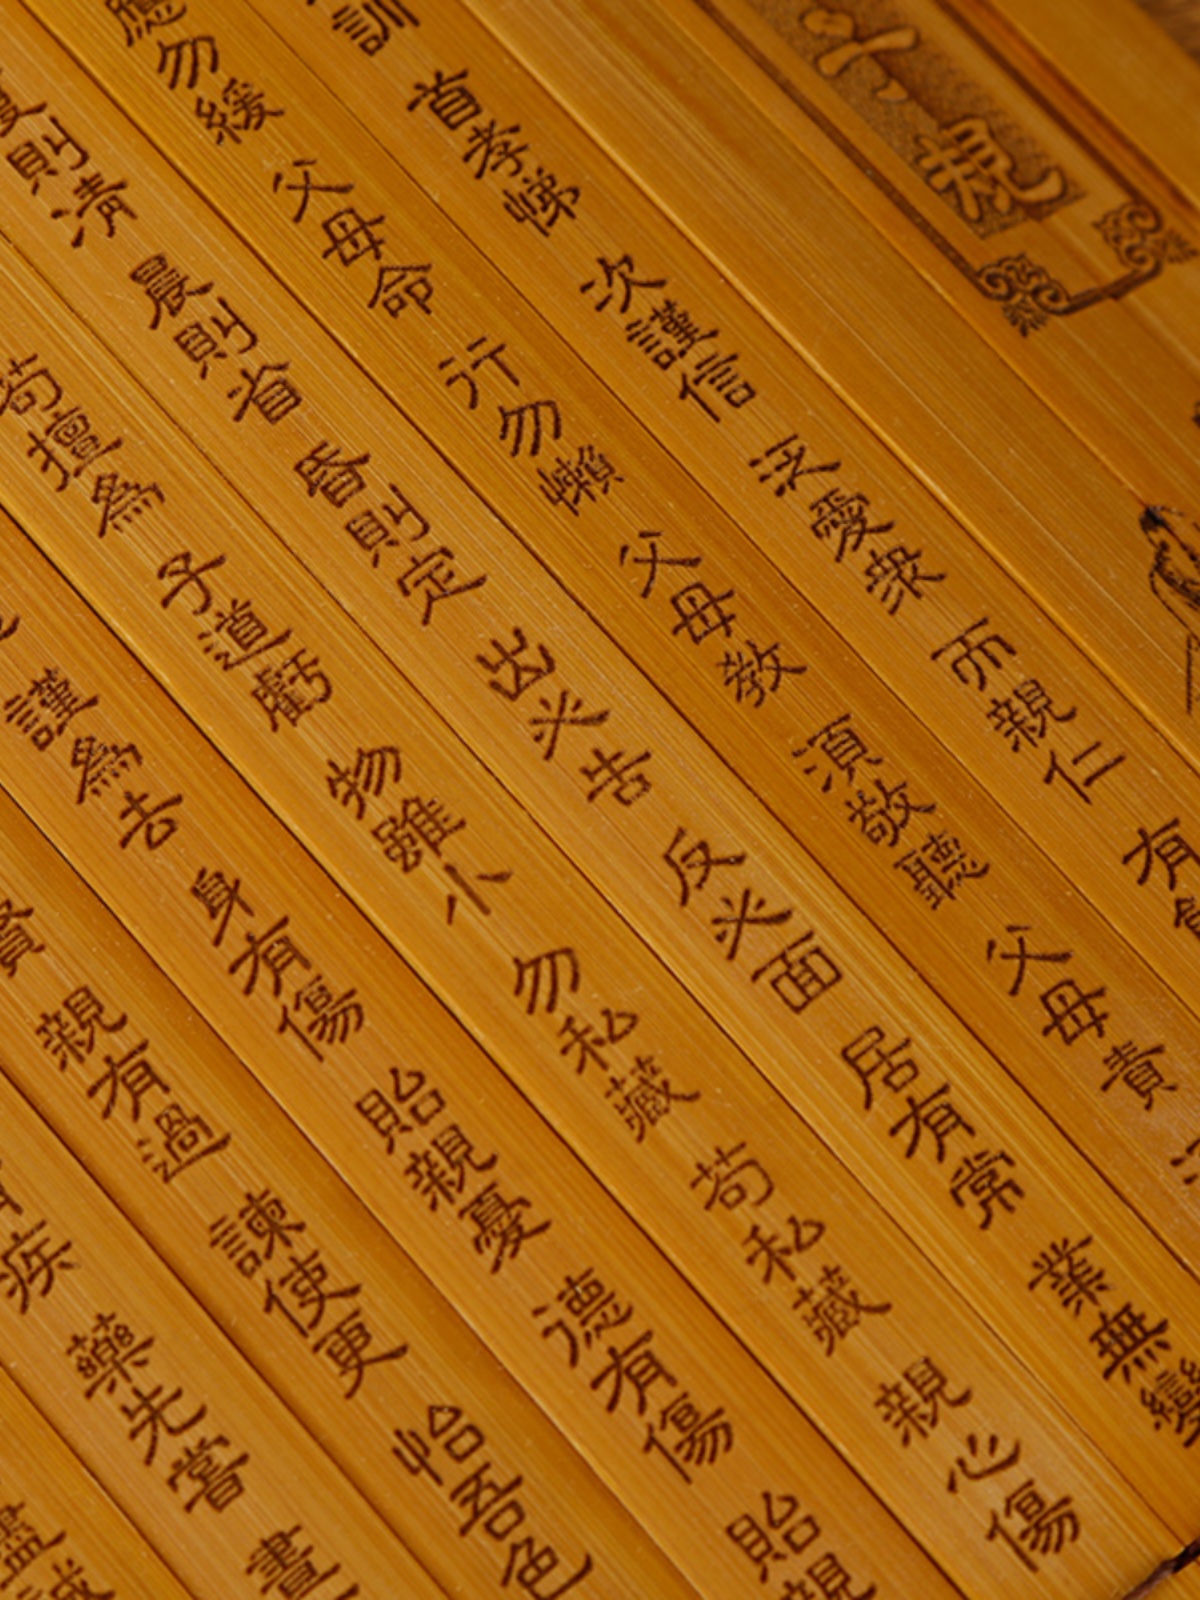 子規
訓 首孝悌 次謹信 泛愛衆 而親仁 有
應勿緩 父母命 行勿懶 父母教 須敬聽 父母責
夏則清 晨則省 昏則定 出必告 反必面 居有常 業無變
苟擅爲 子道虧 物雖小 勿私藏 苟私藏 親心傷
謹爲去 身有傷 貽親憂 德有傷 貽親
賢 親有過 諫使更 怡吾色
疾 藥先嘗 晝
盡誠